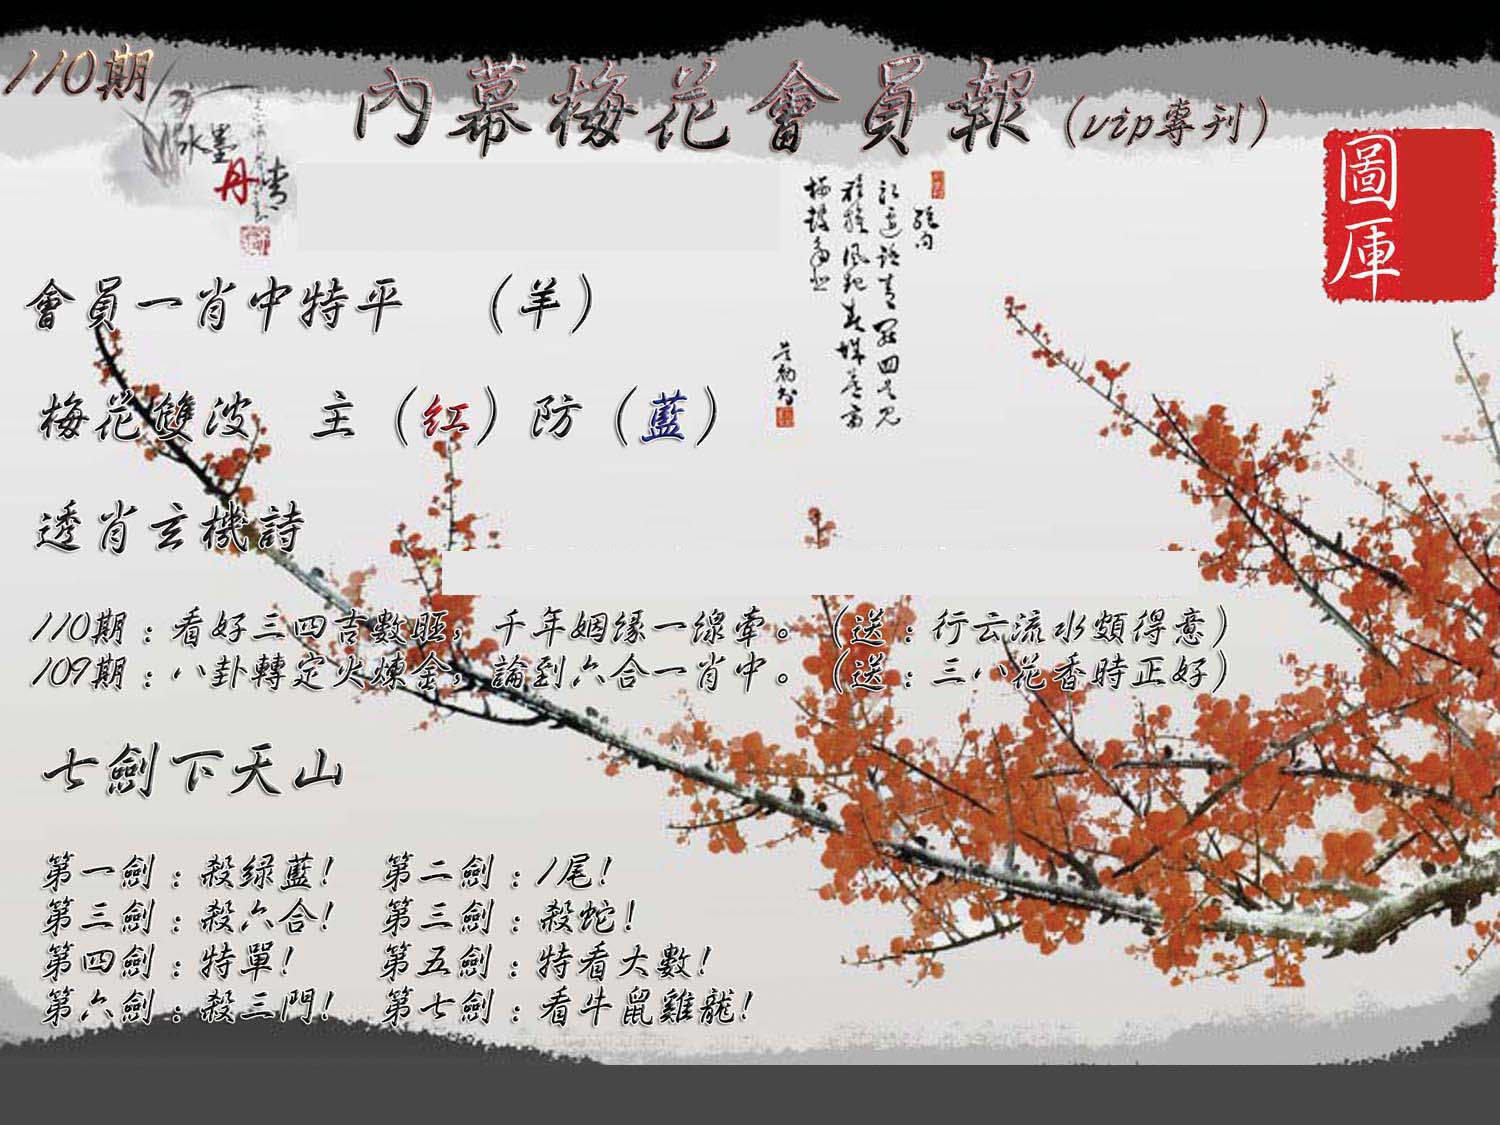 110期
內幕梅花會員報(vip專刊)
水墨
丹青
圖庫
會員一肖中特平 (羊)
梅花雙波 主(紅)防(藍)
透肖玄機詩
110期：看好三四吉數旺，千年姻缘一線牽。(送：行云流水頗得意)
109期：八卦轉定火煉金，論到六合一肖中。(送：三八花香時正好)
七劍下天山
第一劍：殺绿藍! 第二劍：1尾!
第三劍：殺六合! 第三劍：殺蛇!
第四劍：特單! 第五劍：特看大數!
第六劍：殺三門! 第七劍：看牛鼠雞龍!